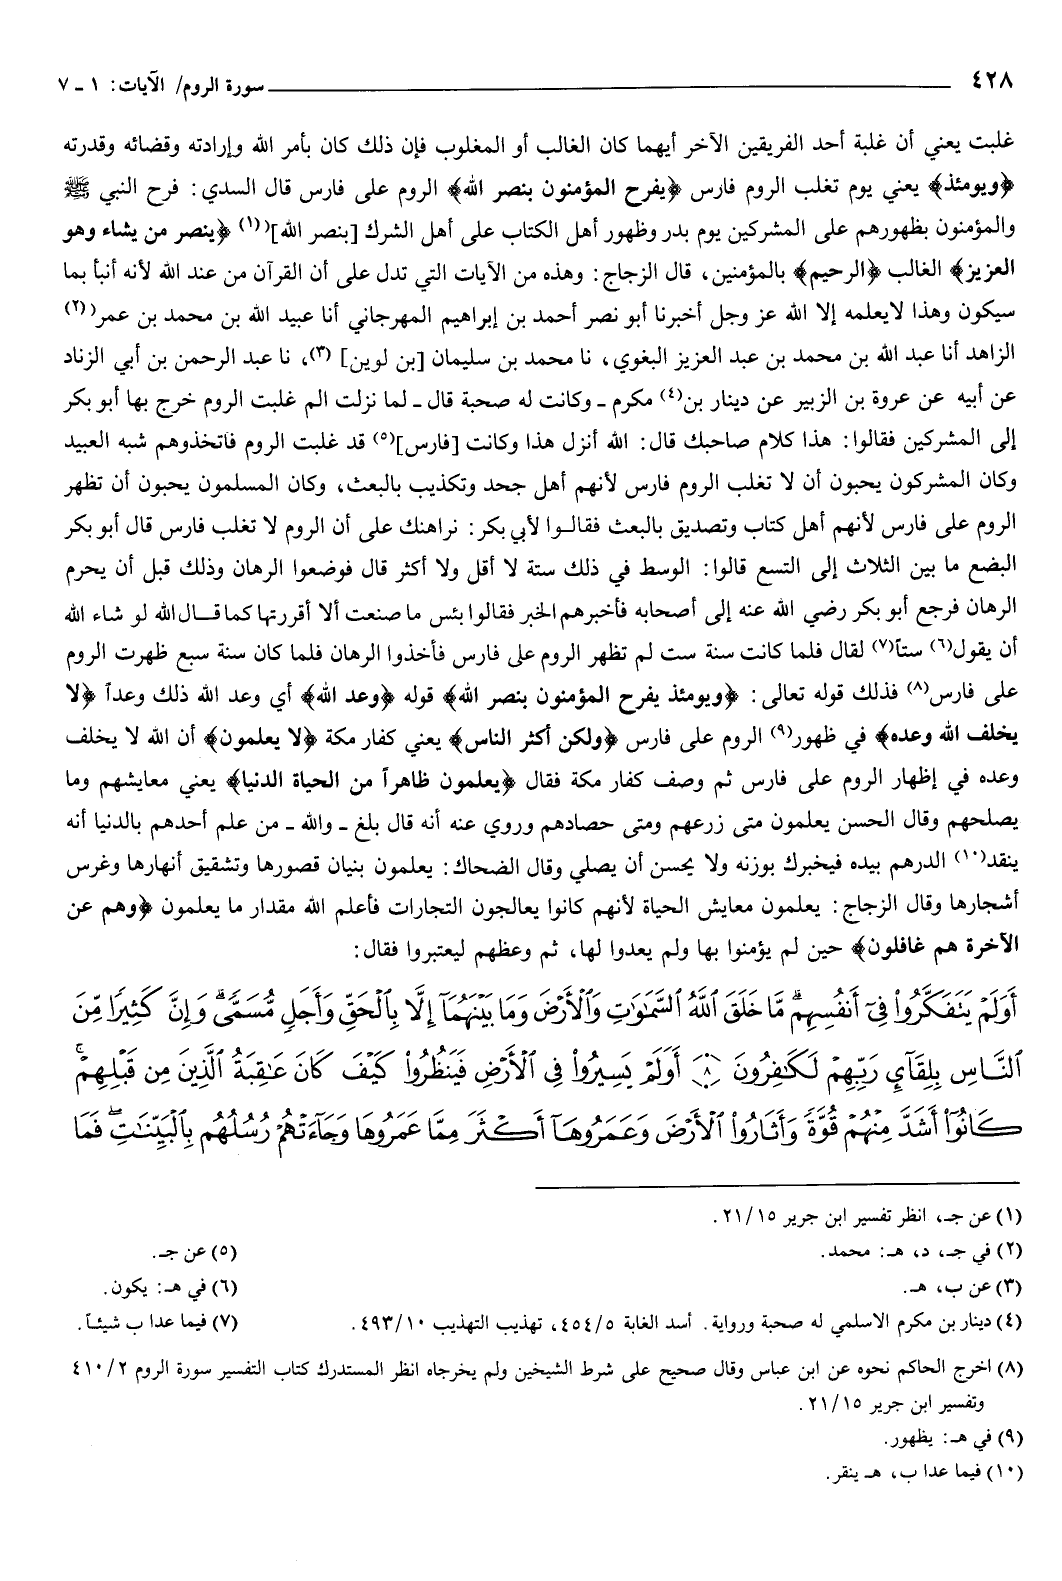 ٤٢٨ سورة الروم/ الآيات: ١ ـ ٧
غلبت يعني أن غلبة أحد الفريقين الآخر أيهما كان الغالب أو المغلوب فإن ذلك كان بأمر الله وإرادته وقضائه وقدرته
﴿ويومئذ﴾ يعني يوم تغلب الروم فارس ﴿يفرح المؤمنون بنصر الله﴾ الروم على فارس قال السدي: فرح النبي ﷺ
والمؤمنون بظهورهم على المشركين يوم بدر وظهور أهل الكتاب على أهل الشرك [بنصر الله]⁽(١) ﴿ينصر من يشاء وهو
العزيز﴾ الغالب ﴿الرحيم﴾ بالمؤمنين، قال الزجاج: وهذه من الآيات التي تدل على أن القرآن من عند الله لأنه أنبأ بما
سيكون وهذا لايعلمه إلا الله عز وجل أخبرنا أبو نصر أحمد بن إبراهيم المهرجاني أنا عبيد الله بن محمد بن عمر⁽(٢)
الزاهد أنا عبد الله بن محمد بن عبد العزيز البغوي، نا محمد بن سليمان [بن لوين] (٣)، نا عبد الرحمن بن أبي الزناد
عن أبيه عن عروة بن الزبير عن دينار بن(٤) مكرم ـ وكانت له صحبة قال ـ لما نزلت الم غلبت الروم خرج بها أبو بكر
إلى المشركين فقالوا: هذا كلام صاحبك قال: الله أنزل هذا وكانت [فارس](٥) قد غلبت الروم فاتخذوهم شبه العبيد
وكان المشركون يحبون أن لا تغلب الروم فارس لأنهم أهل جحد وتكذيب بالبعث، وكان المسلمون يحبون أن تظهر
الروم على فارس لأنهم أهل كتاب وتصديق بالبعث فقالوا لأبي بكر: نراهنك على أن الروم لا تغلب فارس قال أبو بكر
البضع ما بين الثلاث إلى التسع قالوا: الوسط في ذلك ستة لا أقل ولا أكثر قال فوضعوا الرهان وذلك قبل أن يحرم
الرهان فرجع أبو بكر رضي الله عنه إلى أصحابه فأخبرهم الخبر فقالوا بئس ما صنعت ألا أقررتها كما قال الله لو شاء الله
أن يقول(٦) ستاً(٧) لقال فلما كانت سنة ست لم تظهر الروم على فارس فأخذوا الرهان فلما كان سنة سبع ظهرت الروم
على فارس(٨) فذلك قوله تعالى: ﴿ويومئذ يفرح المؤمنون بنصر الله﴾ قوله ﴿وعد الله﴾ أي وعد الله ذلك وعداً ﴿لا
يخلف الله وعده﴾ في ظهور(٩) الروم على فارس ﴿ولكن أكثر الناس﴾ يعني كفار مكة ﴿لا يعلمون﴾ أن الله لا يخلف
وعده في إظهار الروم على فارس ثم وصف كفار مكة فقال ﴿يعلمون ظاهراً من الحياة الدنيا﴾ يعني معايشهم وما
يصلحهم وقال الحسن يعلمون متى زرعهم ومتى حصادهم وروي عنه أنه قال بلغ ـ والله ـ من علم أحدهم بالدنيا أنه
ينقد(١٠) الدرهم بيده فيخبرك بوزنه ولا يحسن أن يصلي وقال الضحاك: يعلمون بنيان قصورها وتشقيق أنهارها وغرس
أشجارها وقال الزجاج: يعلمون معايش الحياة لأنهم كانوا يعالجون التجارات فأعلم الله مقدار ما يعلمون ﴿وهم عن
الآخرة هم غافلون﴾ حين لم يؤمنوا بها ولم يعدوا لها، ثم وعظهم ليعتبروا فقال:
أَوَلَمْ يَتَفَكَّرُواْ فِىٓ أَنفُسِهِمۗ مَّا خَلَقَ ٱللَّهُ ٱلسَّمَٰوَٰتِ وَٱلْأَرْضَ وَمَا بَيْنَهُمَآ إِلَّا بِٱلْحَقِّ وَأَجَلٍ مُّسَمًّىۗ وَإِنَّ كَثِيرًا مِّنَ
ٱلنَّاسِ بِلِقَآئِ رَبِّهِمْ لَكَٰفِرُونَ ٨ أَوَلَمْ يَسِيرُواْ فِى ٱلْأَرْضِ فَيَنظُرُواْ كَيْفَ كَانَ عَٰقِبَةُ ٱلَّذِينَ مِن قَبْلِهِمْۚ
كَانُوٓاْ أَشَدَّ مِنْهُمْ قُوَّةً وَأَثَارُواْ ٱلْأَرْضَ وَعَمَرُوهَآ أَكْثَرَ مِمَّا عَمَرُوهَا وَجَآءَتْهُمْ رُسُلُهُم بِٱلْبَيِّنَٰتِۖ فَمَا
(١) عن جـ، انظر تفسير ابن جرير ٢١/١٥.
(٢) في جـ، د، هـ: محمد.
(٣) عن ب، هـ.
(٤) دينار بن مكرم الاسلمي له صحبة ورواية. أسد الغابة ٤٥٤/٥، تهذيب التهذيب ٤٩٣/١٠.
(٥) عن جـ.
(٦) في هـ: يكون.
(٧) فيما عدا ب شيئاً.
(٨) اخرج الحاكم نحوه عن ابن عباس وقال صحيح على شرط الشيخين ولم يخرجاه انظر المستدرك كتاب التفسير سورة الروم ٤١٠/٢
وتفسير ابن جرير ٢١/١٥.
(٩) في هـ: يظهور.
(١٠) فيما عدا ب، هـ ينقر.